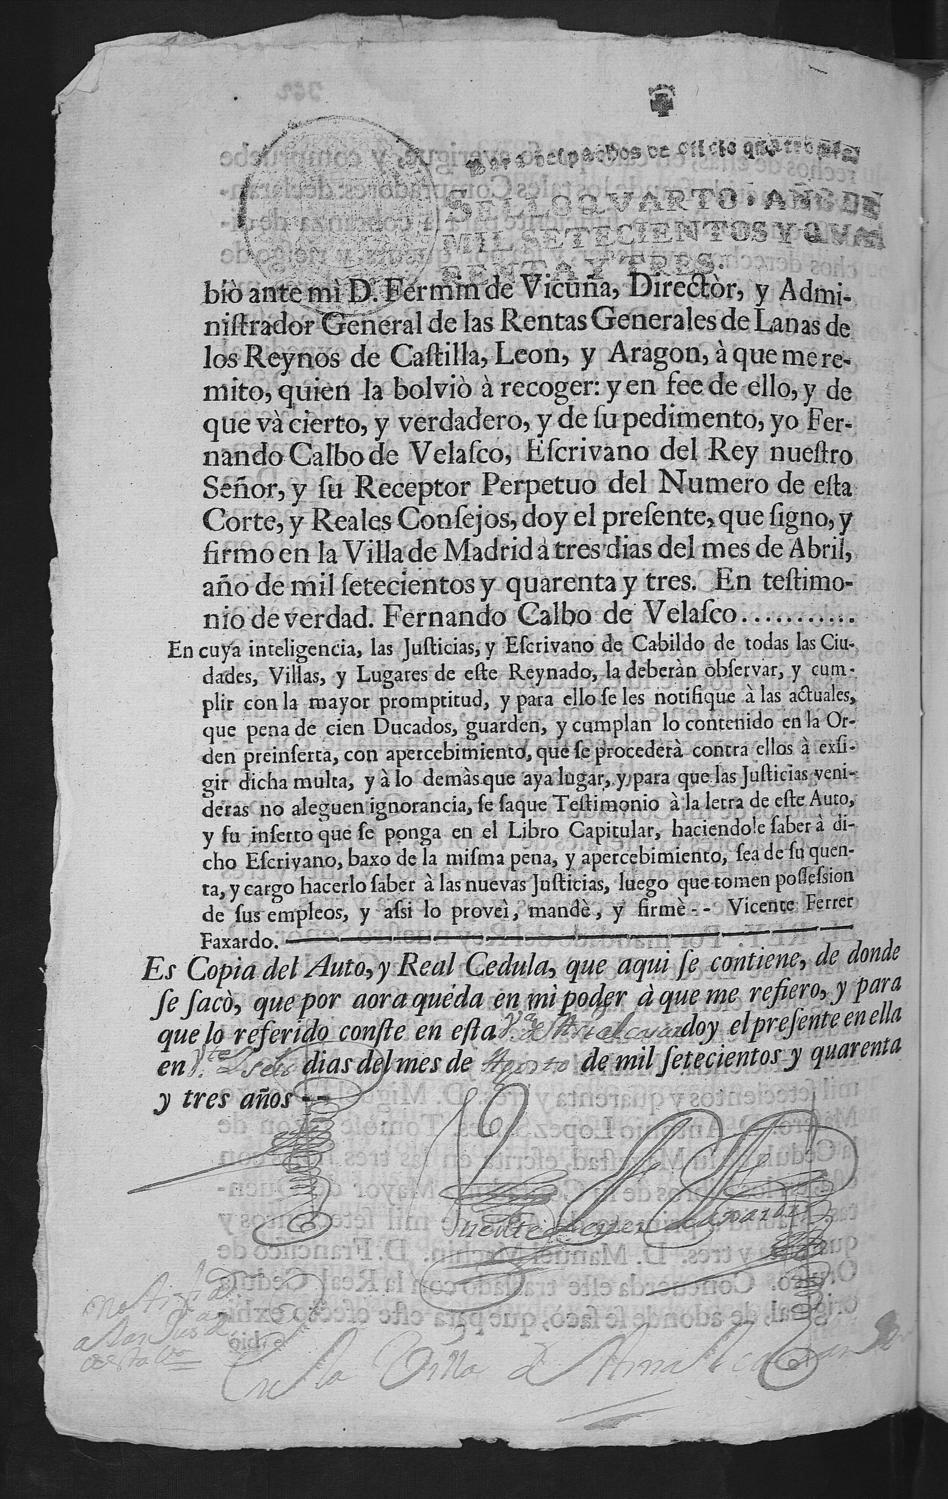 Para despachos de oficio quatro mrs
SELLO QVARTO, AÑO DE
MIL SETECIENTOS Y QVA-
RENTA Y TRES.
biò ante mì D. Fermin de Vicuña, Directòr, y Admi-
niſtrador General de las Rentas Generales de Lanas de
los Reynos de Caſtilla, Leon, y Aragon, à que me re-
mito, quien la bolviò à recoger: y en fee de ello, y de
que và cierto, y verdadero, y de ſu pedimento, yo Fer-
nando Calbo de Velaſco, Eſcrivano del Rey nueſtro
Señor, y ſu Receptor Perpetuo del Numero de eſta
Corte, y Reales Conſejos, doy el preſente, que ſigno, y
firmo en la Villa de Madrid à tres dias del mes de Abril,
año de mil ſetecientos y quarenta y tres. En teſtimo-
nio de verdad. Fernando Calbo de Velaſco...........
En cuya inteligencia, las Juſticias, y Eſcrivano de Cabildo de todas las Ciu-
dades, Villas, y Lugares de eſte Reynado, la deberàn obſervar, y cum-
plir con la mayor promptitud, y para ello ſe les notifique à las actuales,
que pena de cien Ducados, guarden, y cumplan lo contenido en la Or-
den preinſerta, con apercebimiento, que ſe procederà contra ellos à exſi-
gir dicha multa, y à lo demàs que aya lugar, y para que las Juſticias veni-
deras no aleguen ignorancia, ſe ſaque Teſtimonio à la letra de eſte Auto,
y ſu inſerto que ſe ponga en el Libro Capitular, haciendole ſaber à di-
cho Eſcrivano, baxo de la miſma pena, y apercebimiento, ſea de ſu quen-
ta, y cargo hacerlo ſaber à las nuevas Juſticias, luego que tomen poſſeſsion
de ſus empleos, y aſsi lo proveì, mandè, y firmè-- Vicente Ferrer
Faxardo.
Es Copia del Auto, y Real Cedula, que aqui ſe contiene, de donde
ſe ſacò, que por aora quéda en mi poder à que me refiero, y para
que lo referido conſte en eſta Vª de doy el preſente en ella
en dias del mes de Agosto de mil ſetecientos y quarenta
y tres años--
Vicente Ferrer
En la Villa de